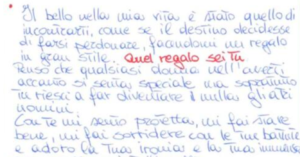 Il bello nella mia vita è stato quello di
incontrarti, come se il destino decidesse
di farsi perdonare, facendomi un regalo
in gran stile. Quel regalo sei tu
Penso che qualsiasi donna nell'averti
accanto si senta speciale ma soprattutto
tu riesci a far diventare nulla gli altri
uomini.
Con te mi sento protetta, mi fai stare
bene, mi fai sorridere con le tue battute
e adoro la tua ironia e la tua